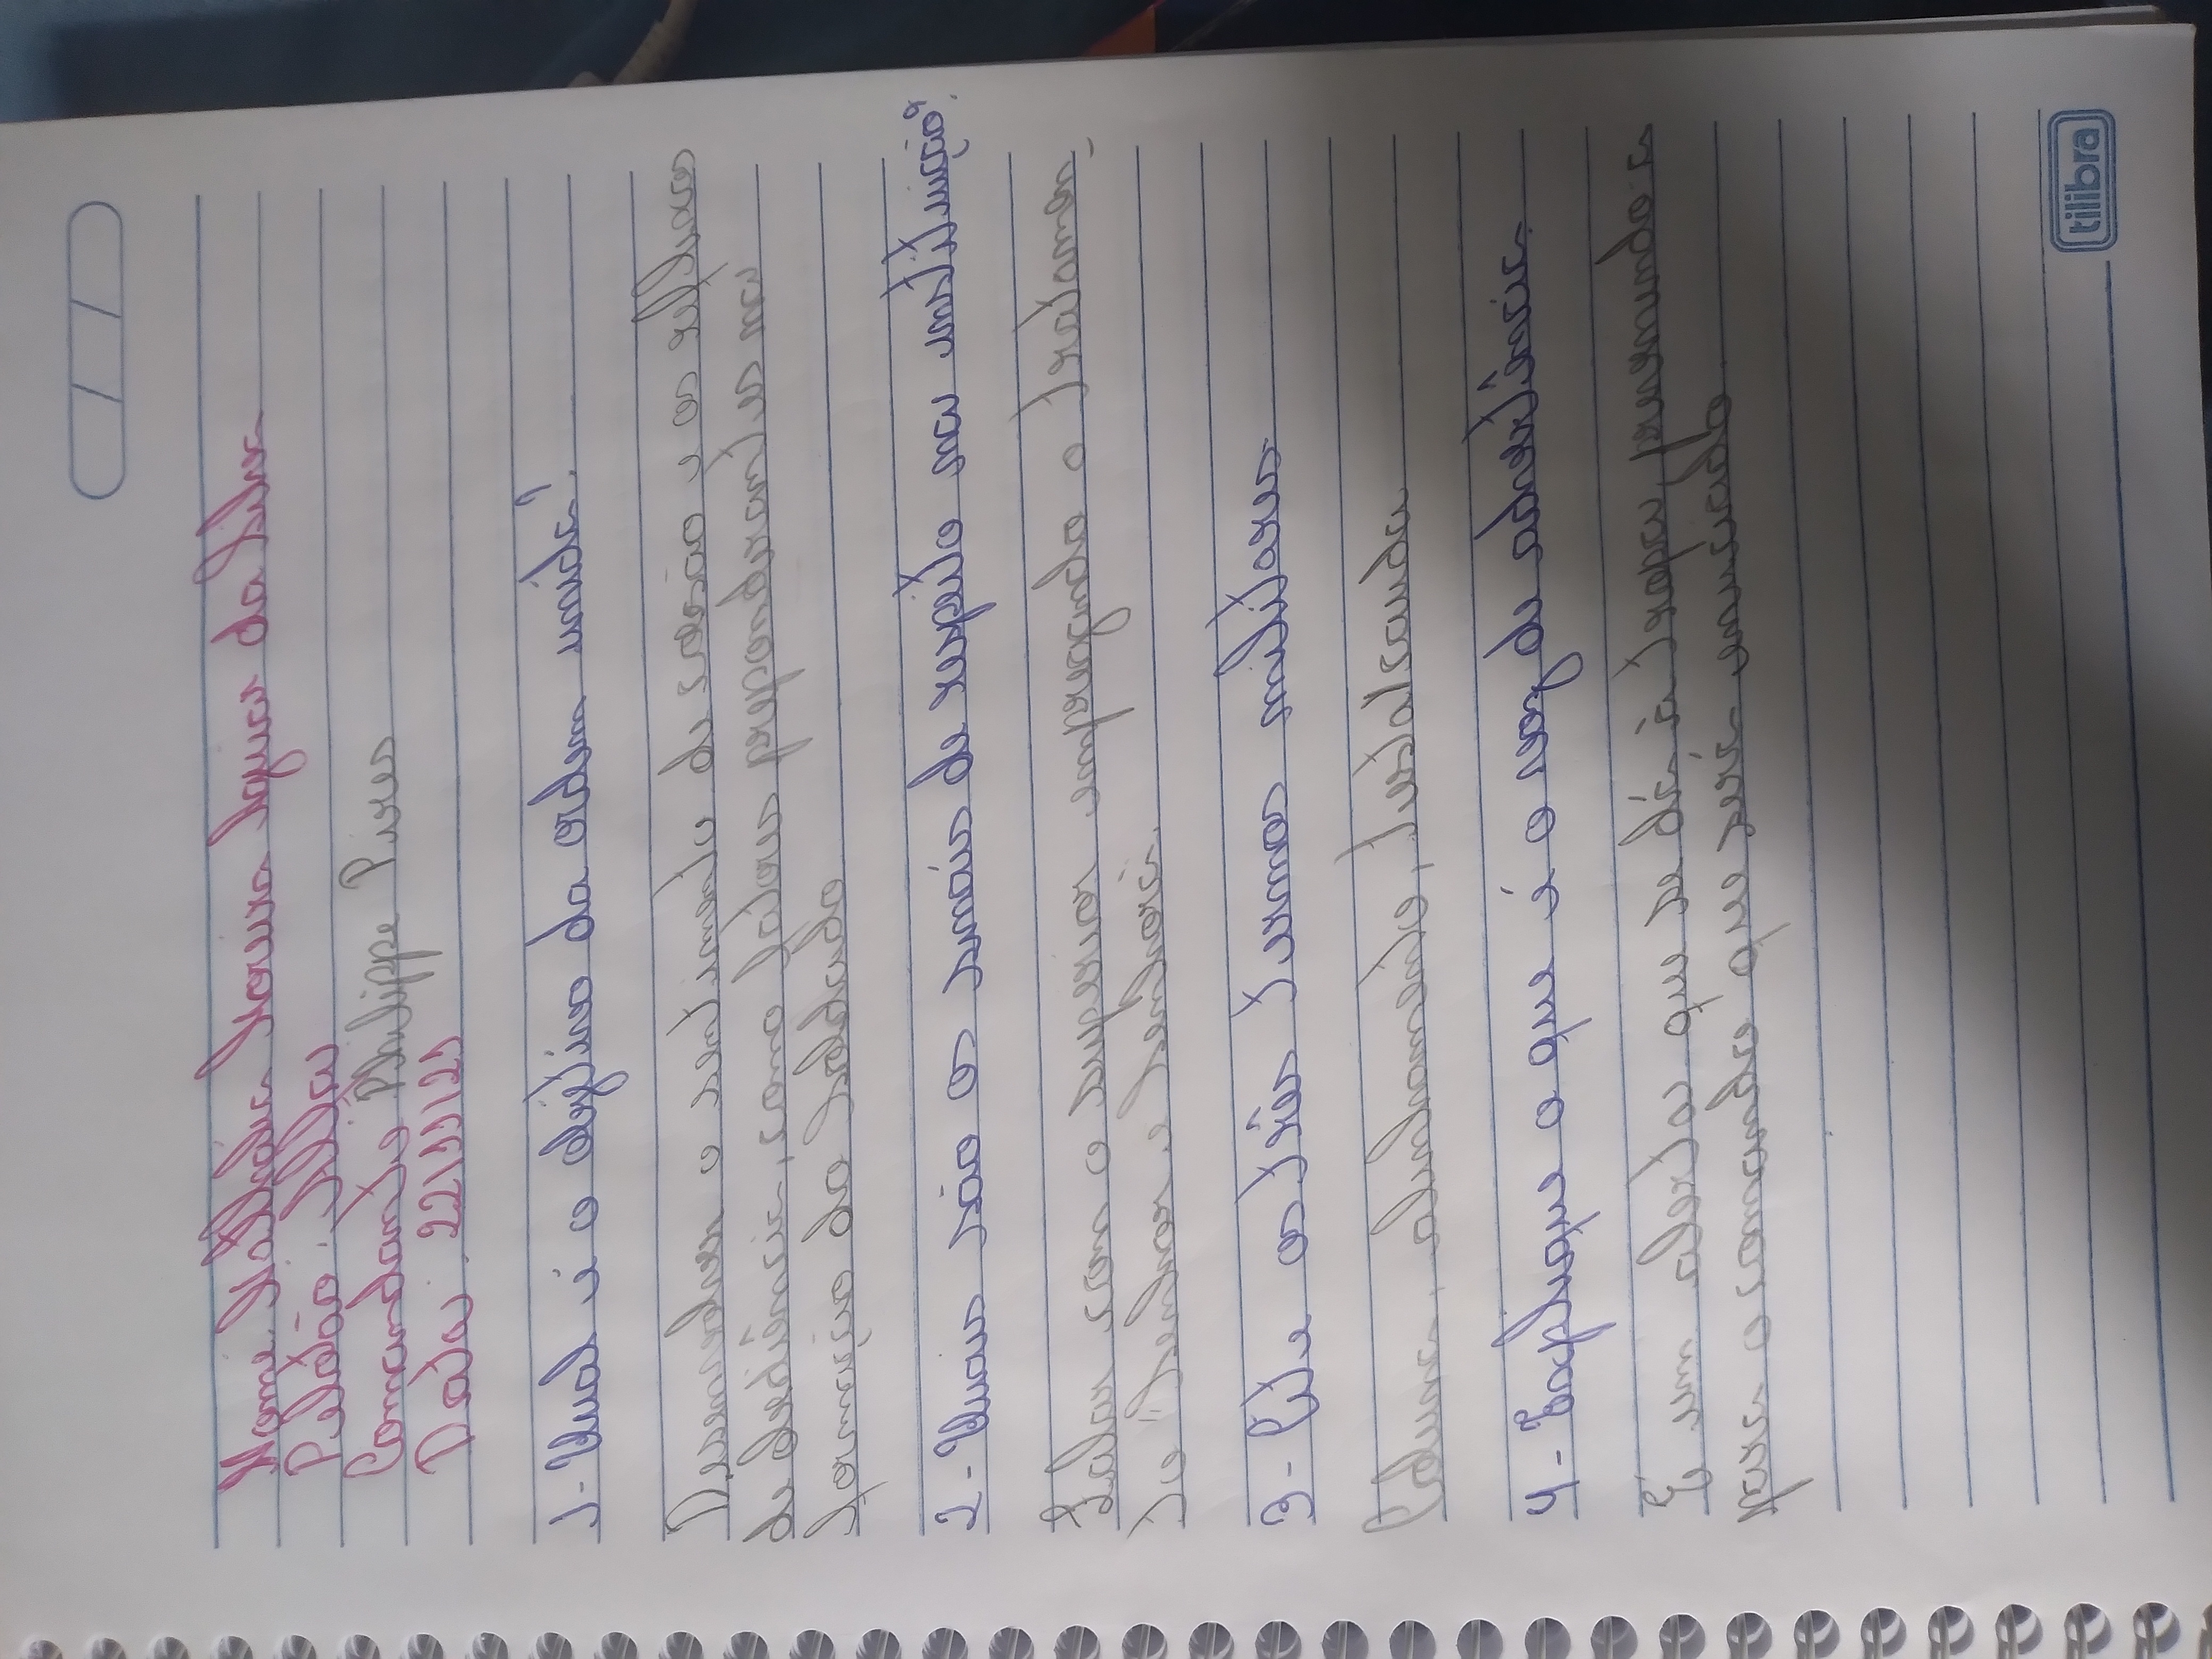 Nome: Nathália Moreira Aguiar da Silva
Pelotão: Alfa
Comandante: Philippe Pires
Data: 22/11/21
1- Qual é o objetivo da ordem unida?
Desenvolver o sentimento de coesão e os reflexos
de obediência, como fatores preponderantes na
formação do Soldado
2- Quais são os sinais de respeito na instituição?
Falar com o superior empregando o tratamen-
to "Senhor e Senhora.
3- Cite os três termos militares
Coluna, alinhamento, testa/cauda
4- Explique o que é o voz de advertência
É um alerta que se dá à tropa, prevenindo a
para o comando que será enuciado.
tilibra